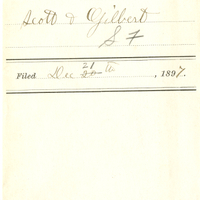 Scott & Gilbert
S F
Filed Dec 21 20th, 1897.